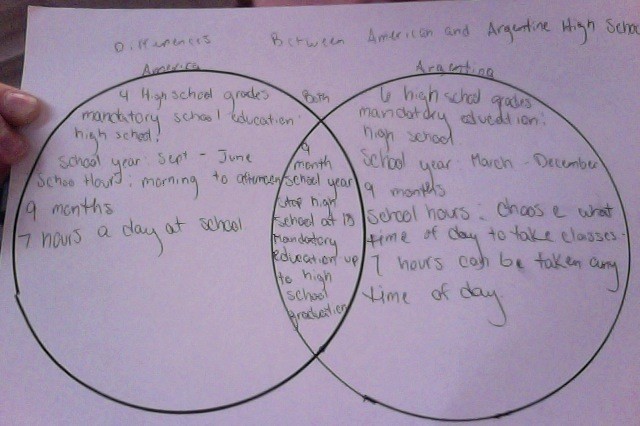 Differences Between American and Argentine High Schoo
America
Both
Argentina
4 High school grades
mandatory school education:
high school.
School year: Sept - June
School Hours: morning to afternoon
9 months
7 hours a day at school
9
month
school year
stop high
school at 18
Mandatory
education up
to high
school
graduation
6 high school grades
mandatory education:
high school
School year: March - December
9 months
School hours: choose what
time of day to take classes.
7 hours can be taken any
time of day.